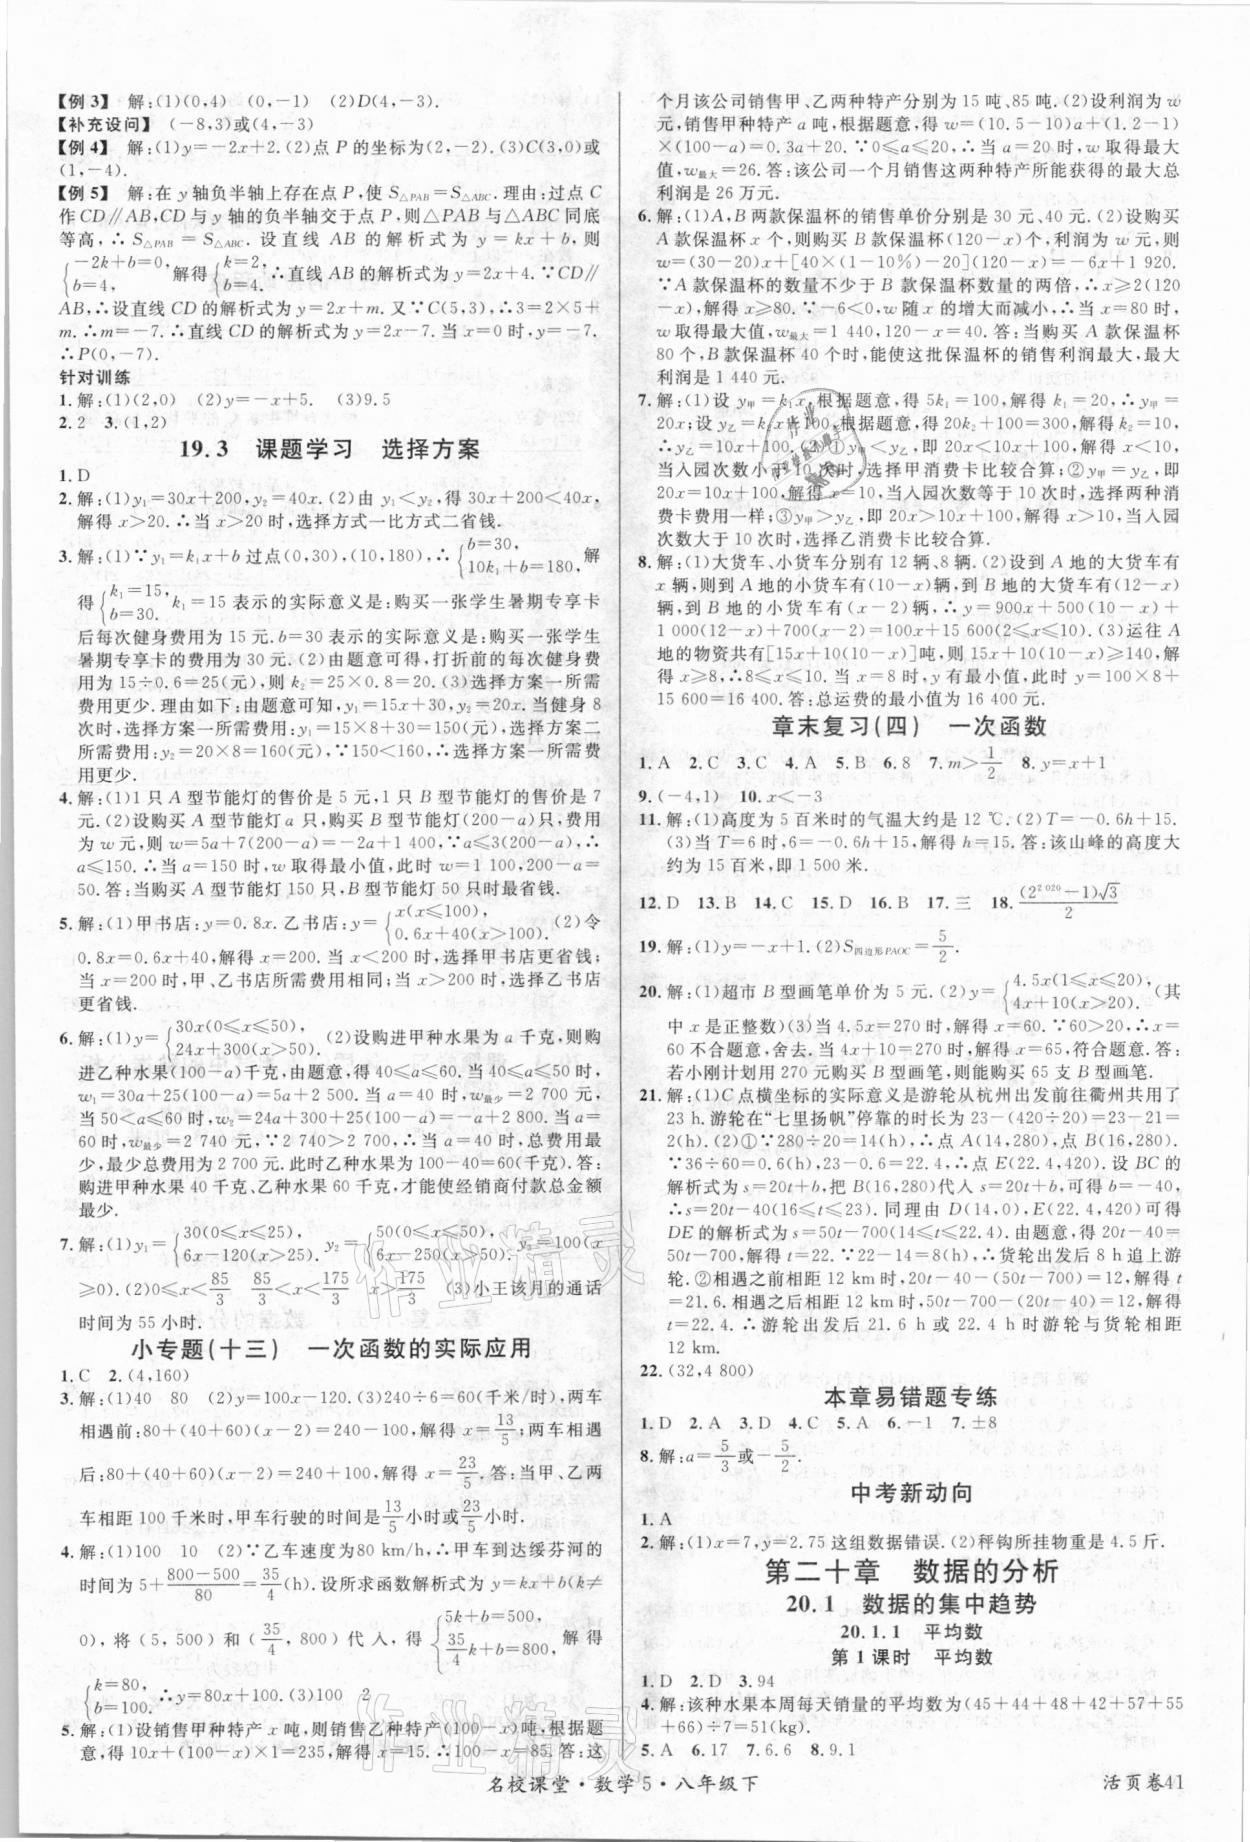 【例3】 解:(1)(0,4) (0,-1) (2)D(4,-3).
【补充设问】 (-8,3)或(4,-3)
【例4】 解:(1)y=-2x+2.(2)点P的坐标为(2,-2).(3)C(3,0)或
(1,-4).
【例5】 解:在y轴负半轴上存在点P,使S△PAB=S△ABC.理由:过点C
作CD∥AB,CD与y轴的负半轴交于点P,则△PAB与△ABC同底
等高,∴S△PAB=S△ABC.设直线AB的解析式为y=kx+b,则
{-2k+b=0, b=4, 解得{k=2, b=4. ∴直线AB的解析式为y=2x+4.∵CD∥
AB,∴设直线CD的解析式为y=2x+m.又∵C(5,3),∴3=2×5+
m.∴m=-7.∴直线CD的解析式为y=2x-7.当x=0时,y=-7.
∴P(0,-7).
针对训练
1.解:(1)(2,0) (2)y=-x+5. (3)9.5
2.2 3.(1,2)
19.3 课题学习 选择方案
1.D
2.解:(1)y₁=30x+200,y₂=40x.(2)由y₁<y₂,得30x+200<40x,
解得x>20.∴当x>20时,选择方式一比方式二省钱.
3.解:(1)∵y₁=k₁x+b过点(0,30),(10,180),∴{b=30, 10k₁+b=180, 解
得{k₁=15, b=30. k₁=15表示的实际意义是:购买一张学生暑期专享卡
后每次健身费用为15元.b=30表示的实际意义是:购买一张学生
暑期专享卡的费用为30元.(2)由题意可得,打折前的每次健身费
用为15÷0.6=25(元),则k₂=25×0.8=20.(3)选择方案一所需
费用更少.理由如下:由题意可知,y₁=15x+30,y₂=20x.当健身8
次时,选择方案一所需费用:y₁=15×8+30=150(元),选择方案二
所需费用:y₂=20×8=160(元),∵150<160,∴选择方案一所需费
用更少.
4.解:(1)1只A型节能灯的售价是5元,1只B型节能灯的售价是7
元.(2)设购买A型节能灯a只,购买B型节能灯(200-a)只,费用
为w元,则w=5a+7(200-a)=-2a+1 400,∵a≤3(200-a),∴
a≤150.∴当a=150时,w取得最小值,此时w=1 100,200-a=
50.答:当购买A型节能灯150只,B型节能灯50只时最省钱.
5.解:(1)甲书店:y=0.8x.乙书店:y={x(x≤100), 0.6x+40(x>100). (2)令
0.8x=0.6x+40,解得x=200,当x<200时,选择甲书店更省钱;
当x=200时,甲、乙书店所需费用相同;当x>200时,选择乙书店
更省钱.
6.解:(1)y={30x(0≤x≤50), 24x+300(x>50). (2)设购进甲种水果为a千克,则购
进乙种水果(100-a)千克,由题意,得40≤a≤60.当40≤a≤50时,
w₁=30a+25(100-a)=5a+2 500.当a=40时,w最少=2 700元,
当50<a≤60时,w₂=24a+300+25(100-a)=-a+2 800.当a=
60时,w最少=2 740元,∵2 740>2 700,∴当a=40时,总费用最
少,最少总费用为2 700元.此时乙种水果100-40=60(千克).答:
购进甲种水果40千克、乙种水果60千克,才能使经销商付款总金额
最少.
7.解:(1)y₁={30(0≤x≤25), 6x-120(x>25). y₂={50(0≤x≤50), 6x-250(x>50). y₃=100(x
≥0).(2)0≤x<85/3 85/3<x<175/3 x>175/3 (3)小王该月的通话
时间为55小时.
小专题(十三) 一次函数的实际应用
1.C 2.(4,160)
3.解:(1)40 80 (2)y=100x-120.(3)240÷6=60(千米/时),两车
相遇前:80+(40+60)(x-2)=240-100,解得x=13/5;两车相遇
后:80+(40+60)(x-2)=240+100,解得x=23/5.答:当甲、乙两
车相距100千米时,甲车行驶的时间是13/5小时或23/5小时.
4.解:(1)100 10 (2)∵乙车速度为80 km/h,∴甲车到达绥芬河的
时间为5+(800-500)/80=35/4(h).设所求函数解析式为y=kx+b(k≠
0),将(5,500)和(35/4,800)代入,得{5k+b=500, 35/4k+b=800. 解得
{k=80, b=100. ∴y=80x+100.(3)100 2
5.解:(1)设销售甲种特产x吨,则销售乙种特产(100-x)吨,根据题
意,得10x+(100-x)×1=235,解得x=15.∴100-x=85.答:这
个月该公司销售甲、乙两种特产分别为15吨、85吨.(2)设利润为w
元,销售甲种特产a吨,根据题意,得w=(10.5-10)a+(1.2-1)
×(100-a)=0.3a+20.∵0≤a≤20,∴当a=20时,w取得最大
值,w最大=26.答:该公司一个月销售这两种特产所能获得的最大总
利润是26万元.
6.解:(1)A,B两款保温杯的销售单价分别是30元、40元.(2)设购买
A款保温杯x个,则购买B款保温杯(120-x)个,利润为w元,则
w=(30-20)x+[40×(1-10%)-20](120-x)=-6x+1 920.
∵A款保温杯的数量不少于B款保温杯数量的两倍,∴x≥2(120
-x),解得x≥80.∵-6<0,w随x的增大而减小,∴当x=80时,
w取得最大值,w最大=1 440,120-x=40.答:当购买A款保温杯
80个,B款保温杯40个时,能使这批保温杯的销售利润最大,最大
利润是1 440元.
7.解:(1)设y甲=k₁x,根据题意,得5k₁=100,解得k₁=20,∴y甲=
20x;设y乙=k₂x+100,根据题意,得20k₂+100=300,解得k₂=10,
∴y乙=10x+100.(2)①y甲<y乙,即20x<10x+100,解得x<10,
当入园次数小于10次时,选择甲消费卡比较合算;②y甲=y乙,即
20x=10x+100,解得x=10,当入园次数等于10次时,选择两种消
费卡费用一样;③y甲>y乙,即20x>10x+100,解得x>10,当入园
次数大于10次时,选择乙消费卡比较合算.
8.解:(1)大货车、小货车分别有12辆、8辆.(2)设到A地的大货车有
x辆,则到A地的小货车有(10-x)辆,到B地的大货车有(12-x)
辆,到B地的小货车有(x-2)辆,∴y=900x+500(10-x)+
1 000(12-x)+700(x-2)=100x+15 600(2≤x≤10).(3)运往A
地的物资共有[15x+10(10-x)]吨,则15x+10(10-x)≥140,解
得x≥8,∴8≤x≤10.当x=8时,y有最小值,此时y=100×8+
15 600=16 400.答:总运费的最小值为16 400元.
章末复习(四) 一次函数
1.A 2.C 3.C 4.A 5.B 6.8 7.m>1/2 8.y=x+1
9.(-4,1) 10.x<-3
11.解:(1)高度为5百米时的气温大约是12 ℃.(2)T=-0.6h+15.
(3)当T=6时,6=-0.6h+15,解得h=15.答:该山峰的高度大
约为15百米,即1 500米.
12.D 13.B 14.C 15.D 16.B 17.三 18.(2^2 020-1)√3/2
19.解:(1)y=-x+1.(2)S四边形PAOC=5/2.
20.解:(1)超市B型画笔单价为5元.(2)y={4.5x(1≤x≤20), 4x+10(x>20). (其
中x是正整数)(3)当4.5x=270时,解得x=60.∵60>20,∴x=
60不合题意,舍去.当4x+10=270时,解得x=65,符合题意.答:
若小刚计划用270元购买B型画笔,则能购买65支B型画笔.
21.解:(1)C点横坐标的实际意义是游轮从杭州出发前往衢州共用了
23 h.游轮在“七里扬帆”停靠的时长为23-(420÷20)=23-21=
2(h).(2)①∵280÷20=14(h),∴点A(14,280),点B(16,280).
∵36÷60=0.6(h),23-0.6=22.4,∴点E(22.4,420).设BC的
解析式为s=20t+b,把B(16,280)代入s=20t+b,可得b=-40,
∴s=20t-40(16≤t≤23).同理由D(14,0),E(22.4,420)可得
DE的解析式为s=50t-700(14≤t≤22.4).由题意,得20t-40=
50t-700,解得t=22.∵22-14=8(h),∴货轮出发后8 h追上游
轮.②相遇之前相距12 km时,20t-40-(50t-700)=12,解得t
=21.6.相遇之后相距12 km时,50t-700-(20t-40)=12,解得t
=22.4.∴游轮与货轮在21.6 h或22.4 h时游轮与货轮相距
12 km.
22.(32,4 800)
本章易错题专练
1.D 2.A 3.D 4.C 5.A 6.-1 7.±8
8.解:a=5/3或-5/2.
中考新动向
1.A
2.解:(1)x=7,y=2.75这组数据错误.(2)秤钩所挂物重是4.5斤.
第二十章 数据的分析
20.1 数据的集中趋势
20.1.1 平均数
第1课时 平均数
1.D 2.D 3.94
4.解:该种水果本周每天销量的平均数为(45+44+48+42+57+55
+66)÷7=51(kg).
5.A 6.17 7.6.6 8.9.1
名校课堂·数学5·八年级下
活页卷41
作业精灵
作业精灵